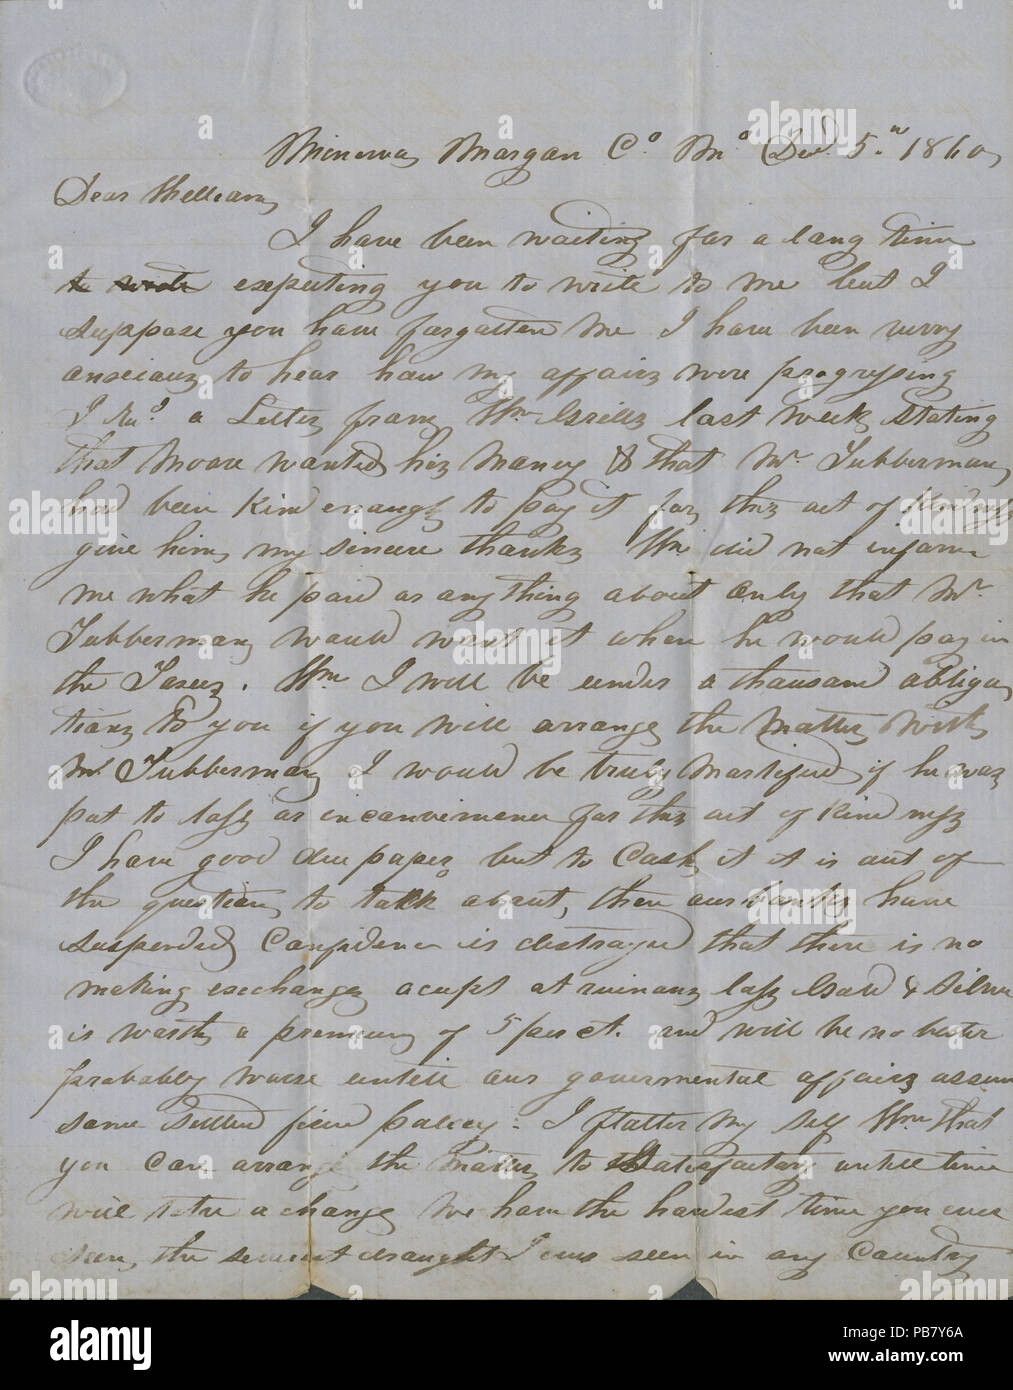 Minerva Morgan Co. Mo. Dec. 5th 1860
Dear William
I have been waiting for a long time
to write expecting you to write to me but I
suppose you have forgotten me I have been verry
anxious to hear how my affairs were progressing
I Recd a Letter from Wm last week stating
that Moore wanted his Money & that Mr. Tubberman
had been kind enough to pay it for this act of kindness
give him my sincere thanks Wm did not inform
me what he paid or anything about only that Mr.
Tubberman would want it when he would pay in
the Taxes. Wm I will be under a thousand obliga
tions to you if you will arrange the matter with
Mr Tubberman I would be truly Mortifid if he was
put to loss or inconvenience for this act of kindness
I have good due paper but to Cash it it is out of
the question to talk about, then our banks have
suspended Confidence is destroyed that there is no
making exchanges acept at ruinous loss Gold & Silver
is worth a premium of 5 per ct. and will be no better
probably worse untill our govermental affairs assum
some settled policy. I flatter my self Wm that
you can arrange the matter to Satisfactory untill time
will a change We have the hardest time you ever
seen, the draught I ever seen in any Country
alamy
alamy stock photo
Image ID: PB7Y6A
www.alamy.com